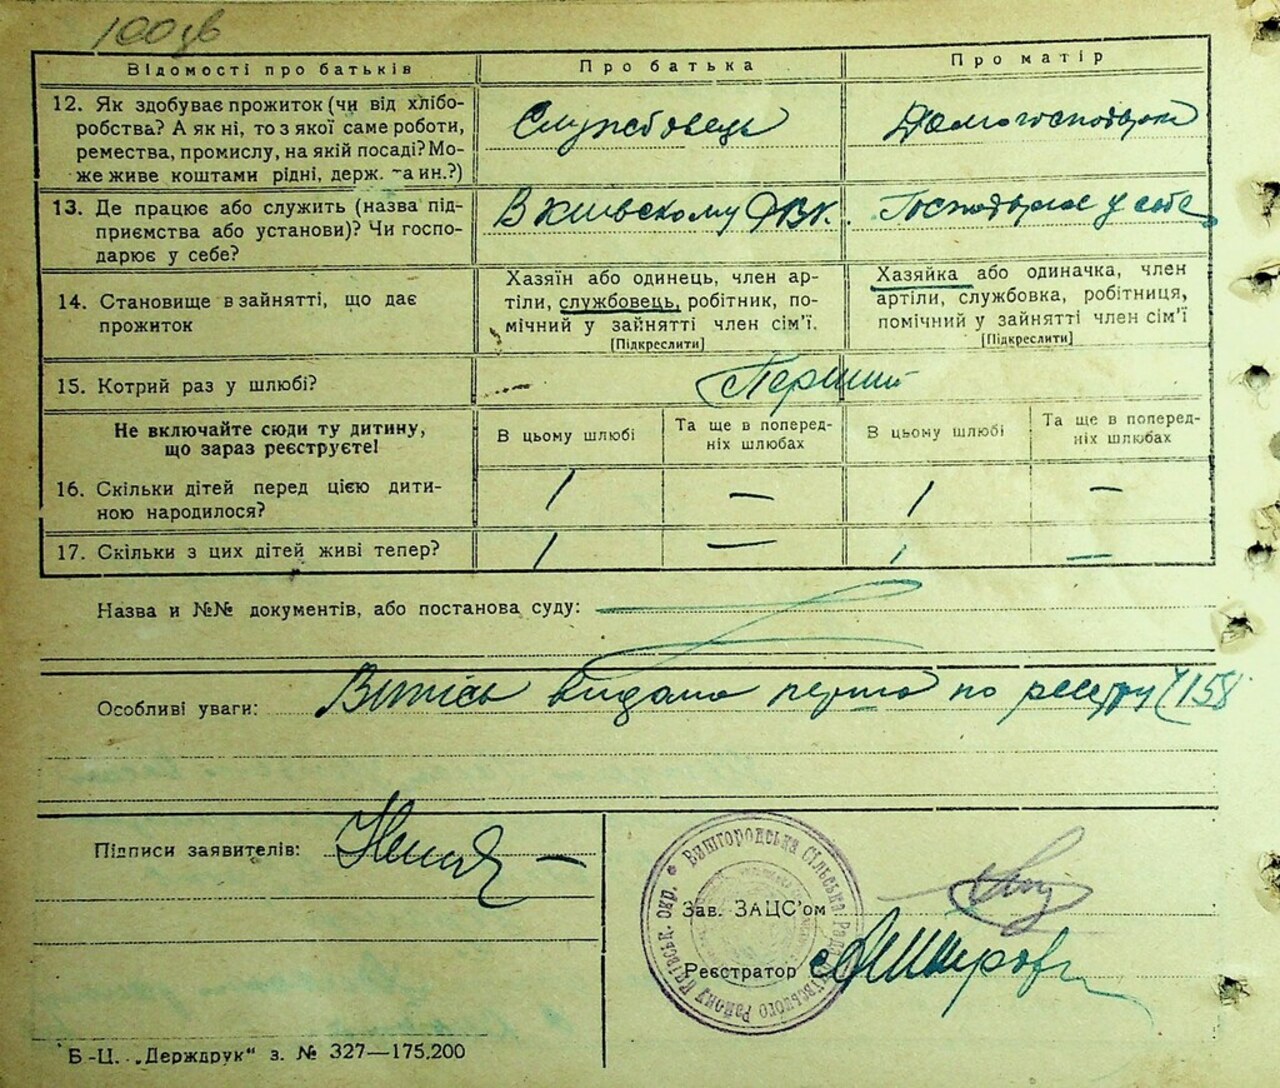 100 зв
Відомості про батьків
Про батька
Про матір
12. Як здобуває прожиток (чи від хлібо-
робства? А як ні, то з якої саме роботи,
ремества, промислу, на якій посаді? Мо-
же живе коштами рідні, держ. та ин.?)
Службовець
Домогосподарка
13. Де працює або служить (назва під-
приємства або установи)? Чи госпо-
дарює у себе?
В Київскому
Господарює у себе
14. Становище в зайнятті, що дає
прожиток
Хазяїн або одинець, член ар-
тіли, службовець, робітник, по-
мічний у зайнятті член сім'ї.
[Підкреслити]
Хазяйка або одиначка, член
артіли, службовка, робітниця,
помічний у зайнятті член сім'ї
[Підкреслити]
15. Котрий раз у шлюбі?
Перший
Не включайте сюди ту дитину,
що зараз реєструєте!
В цьому шлюбі
Та ще в поперед-
ніх шлюбах
В цьому шлюбі
Та ще в поперед-
ніх шлюбах
16. Скільки дітей перед цією дити-
ною народилося?
1 — 1 —
17. Скільки з цих дітей живі тепер?
1 — 1 —
Назва и №№ документів, або постанова суду:
Особливі уваги: Випись видана перша по реєстру 158
Підписи заявителів:
Вишгородська Сільська Рада Київського Району Київськ. окр.
Зав. ЗАЦС'ом
Реєстратор
Б-Ц. „Держдрук“ з. № 327—175.200